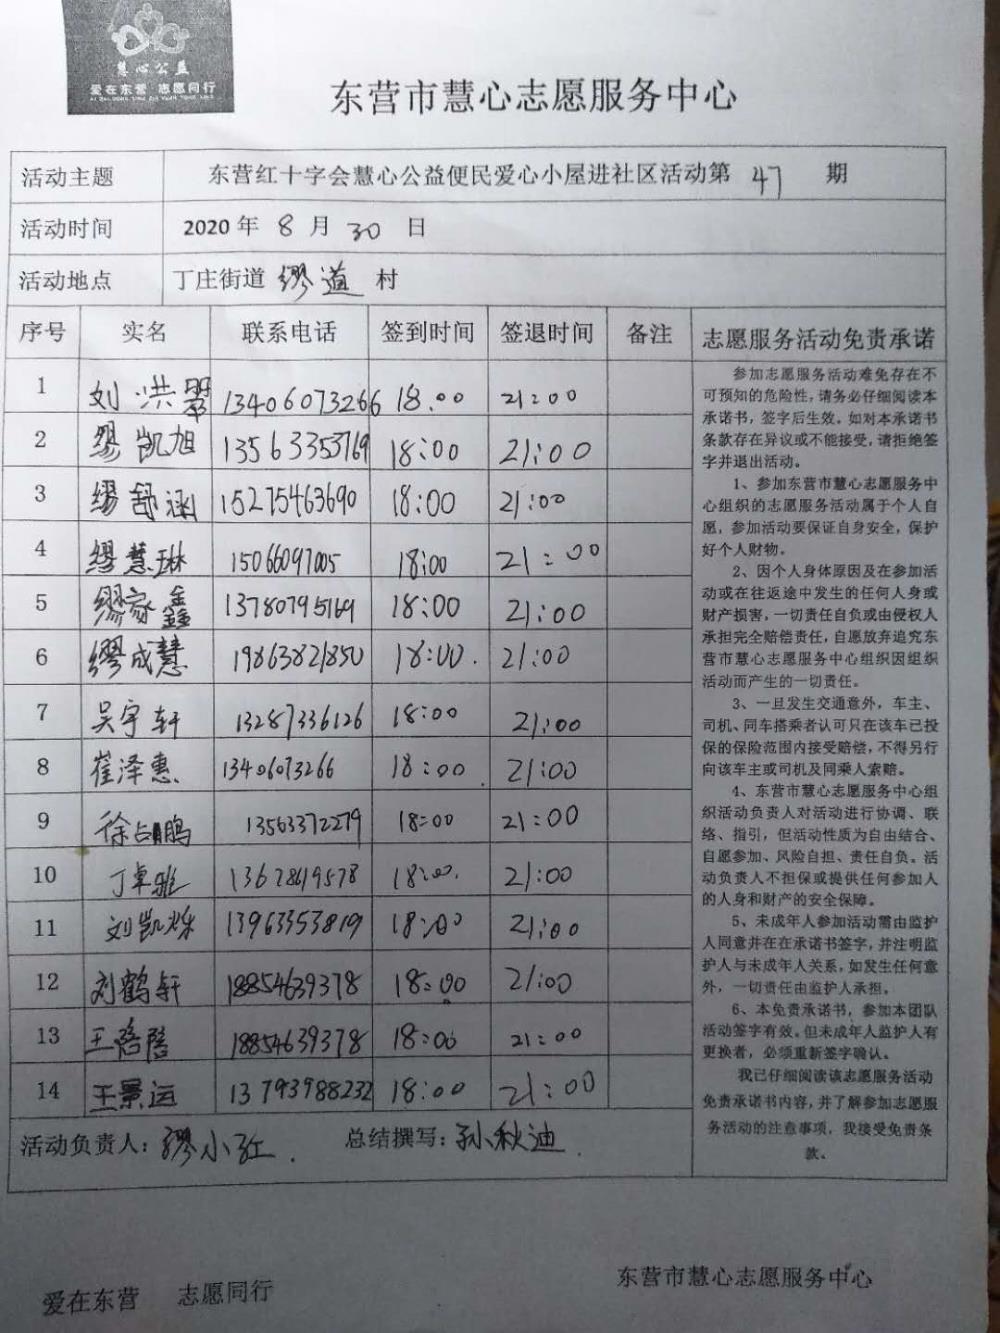 慧心公益
爱在东营 志愿同行
东营市慧心志愿服务中心
活动主题 东营红十字会慧心公益便民爱心小屋进社区活动第 47 期
活动时间 2020 年 8 月 30 日
活动地点 丁庄街道 缪道 村
序号 实名 联系电话 签到时间 签退时间 备注 志愿服务活动免责承诺
1 刘洪 13406073266 18:00 21:00
2 缪凯旭 13563353769 18:00 21:00
3 缪舒涵 15275463690 18:00 21:00
4 缪慧琳 15066097005 18:00 21:00
5 缪家鑫 13780795169 18:00 21:00
6 缪成慧 19863821850 18:00. 21:00
7 吴宇轩 13287336126 18:00 21:00
8 崔泽惠 13406073266 18:00 21:00
9 徐占鹏 13563372279 18:00 21:00
10 丁卓雅 13678619578 18:00. 21:00
11 刘凯烁 13963353819 18:00 21:00
12 刘鹤轩 18854639378 18:00 21:00
13 王 18854639378 18:00 21:00
14 王景运 13793988232 18:00 21:00
参加志愿服务活动难免存在不
可预知的危险性,请务必仔细阅读本
承诺书,签字后生效。如对本承诺书
条款存在异议或不能接受,请拒绝签
字并退出活动。
1、参加东营市慧心志愿服务中
心组织的志愿服务活动属于个人自
愿,参加活动要保证自身安全,保护
好个人财物。
2、因个人身体原因及在参加活
动或在往返途中发生的任何人身或
财产损害,一切责任自负或由侵权人
承担完全赔偿责任,自愿放弃追究东
营市慧心志愿服务中心组织因组织
活动而产生的一切责任。
3、一旦发生交通意外,车主、
司机、同车搭乘者认可只在该车已投
保的保险范围内接受赔偿,不得另行
向该车主或司机及同乘人索赔。
4、东营市慧心志愿服务中心组
织活动负责人对活动进行协调、联
络、指引,但活动性质为自由结合、
自愿参加、风险自担、责任自负。活
动负责人不担保或提供任何参加人
的人身和财产的安全保障。
5、未成年人参加活动需由监护
人同意并在在承诺书签字,并注明监
护人与未成年人关系,如发生任何意
外,一切责任由监护人承担。
6、本免责承诺书,参加本团队
活动签字有效。但未成年人监护人有
更换者,必须重新签字确认。
我已仔细阅读该志愿服务活动
免责承诺书内容,并了解参加志愿服
务活动的注意事项,我接受免责条
款。
活动负责人:缪小红. 总结撰写:孙秋迪.
爱在东营 志愿同行
东营市慧心志愿服务中心